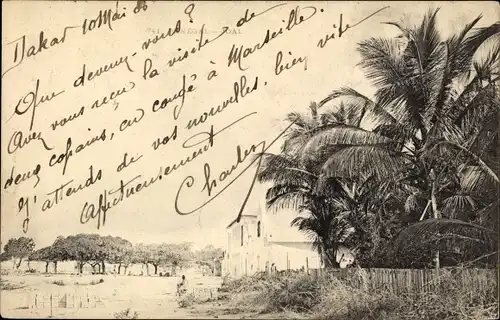 Dakar 10 Mai 06
SÉNÉGAL - JOAL
Que devenez-vous?
Avez vous reçu la visite de
deux copains, en congé à Marseille.
J'attends de vos nouvelles, bien vite
Affectueusement
Charles